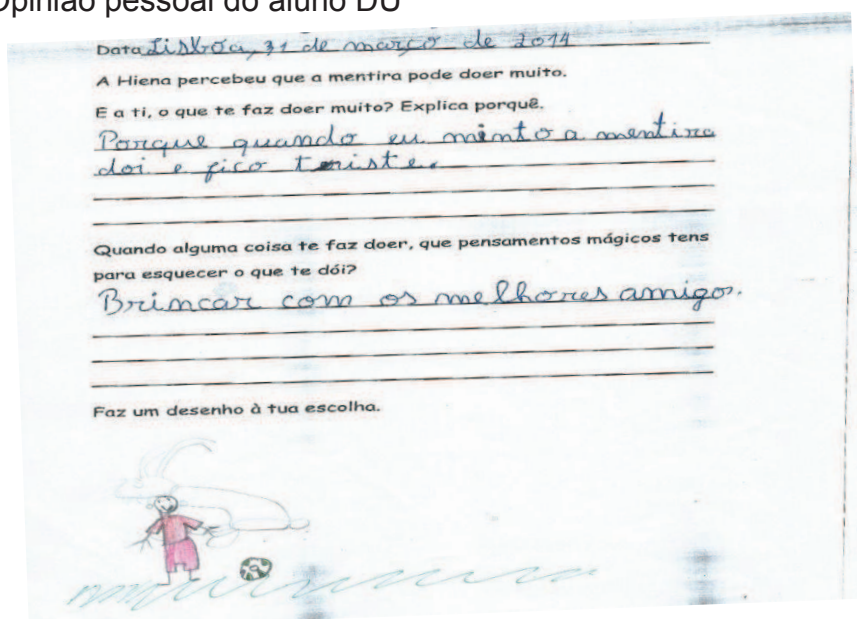 Opinião pessoal do aluno DU
Data Lisboa, 31 de março de 2014
A Hiena percebeu que a mentira pode doer muito.
E a ti, o que te faz doer muito? Explica porquê.
Porque quando eu minto a mentira
doi e fico teriste.
Quando alguma coisa te faz doer, que pensamentos mágicos tens
para esquecer o que te dói?
Brincar com os melhores amigos.
Faz um desenho à tua escolha.